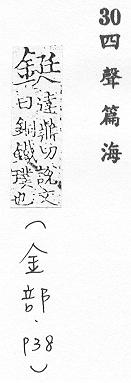 30四聲篇海
鋌達鼎切說文
曰銅鐵璞也
(金部.P38)